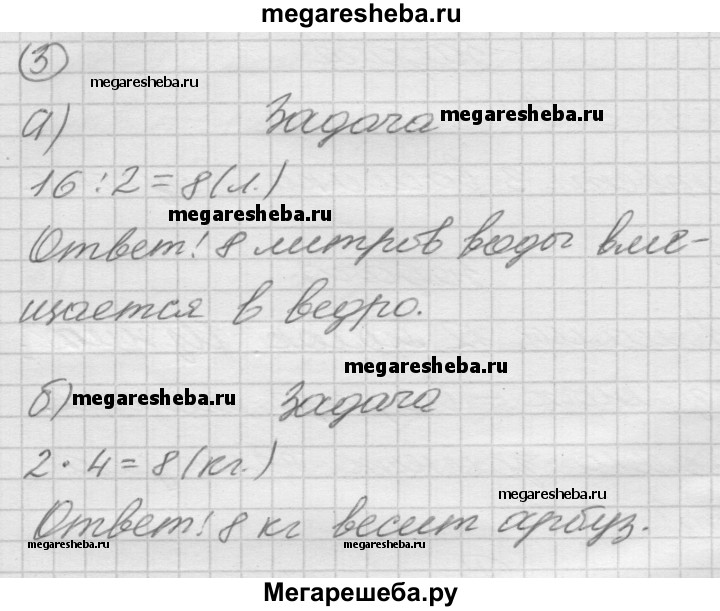 megaresheba.ru
3
megaresheba.ru
а) Задача megaresheba.ru
16 : 2 = 8 (л.)
megaresheba.ru
Ответ! 8 литров воды вме-
щается в ведро.
megaresheba.ru
б) megaresheba.ru Задача
2 · 4 = 8 (кг.)
megaresheba.ru
Ответ! 8 кг весит арбуз.
megaresheba.ru megaresheba.ru
Мегарешеба.ру